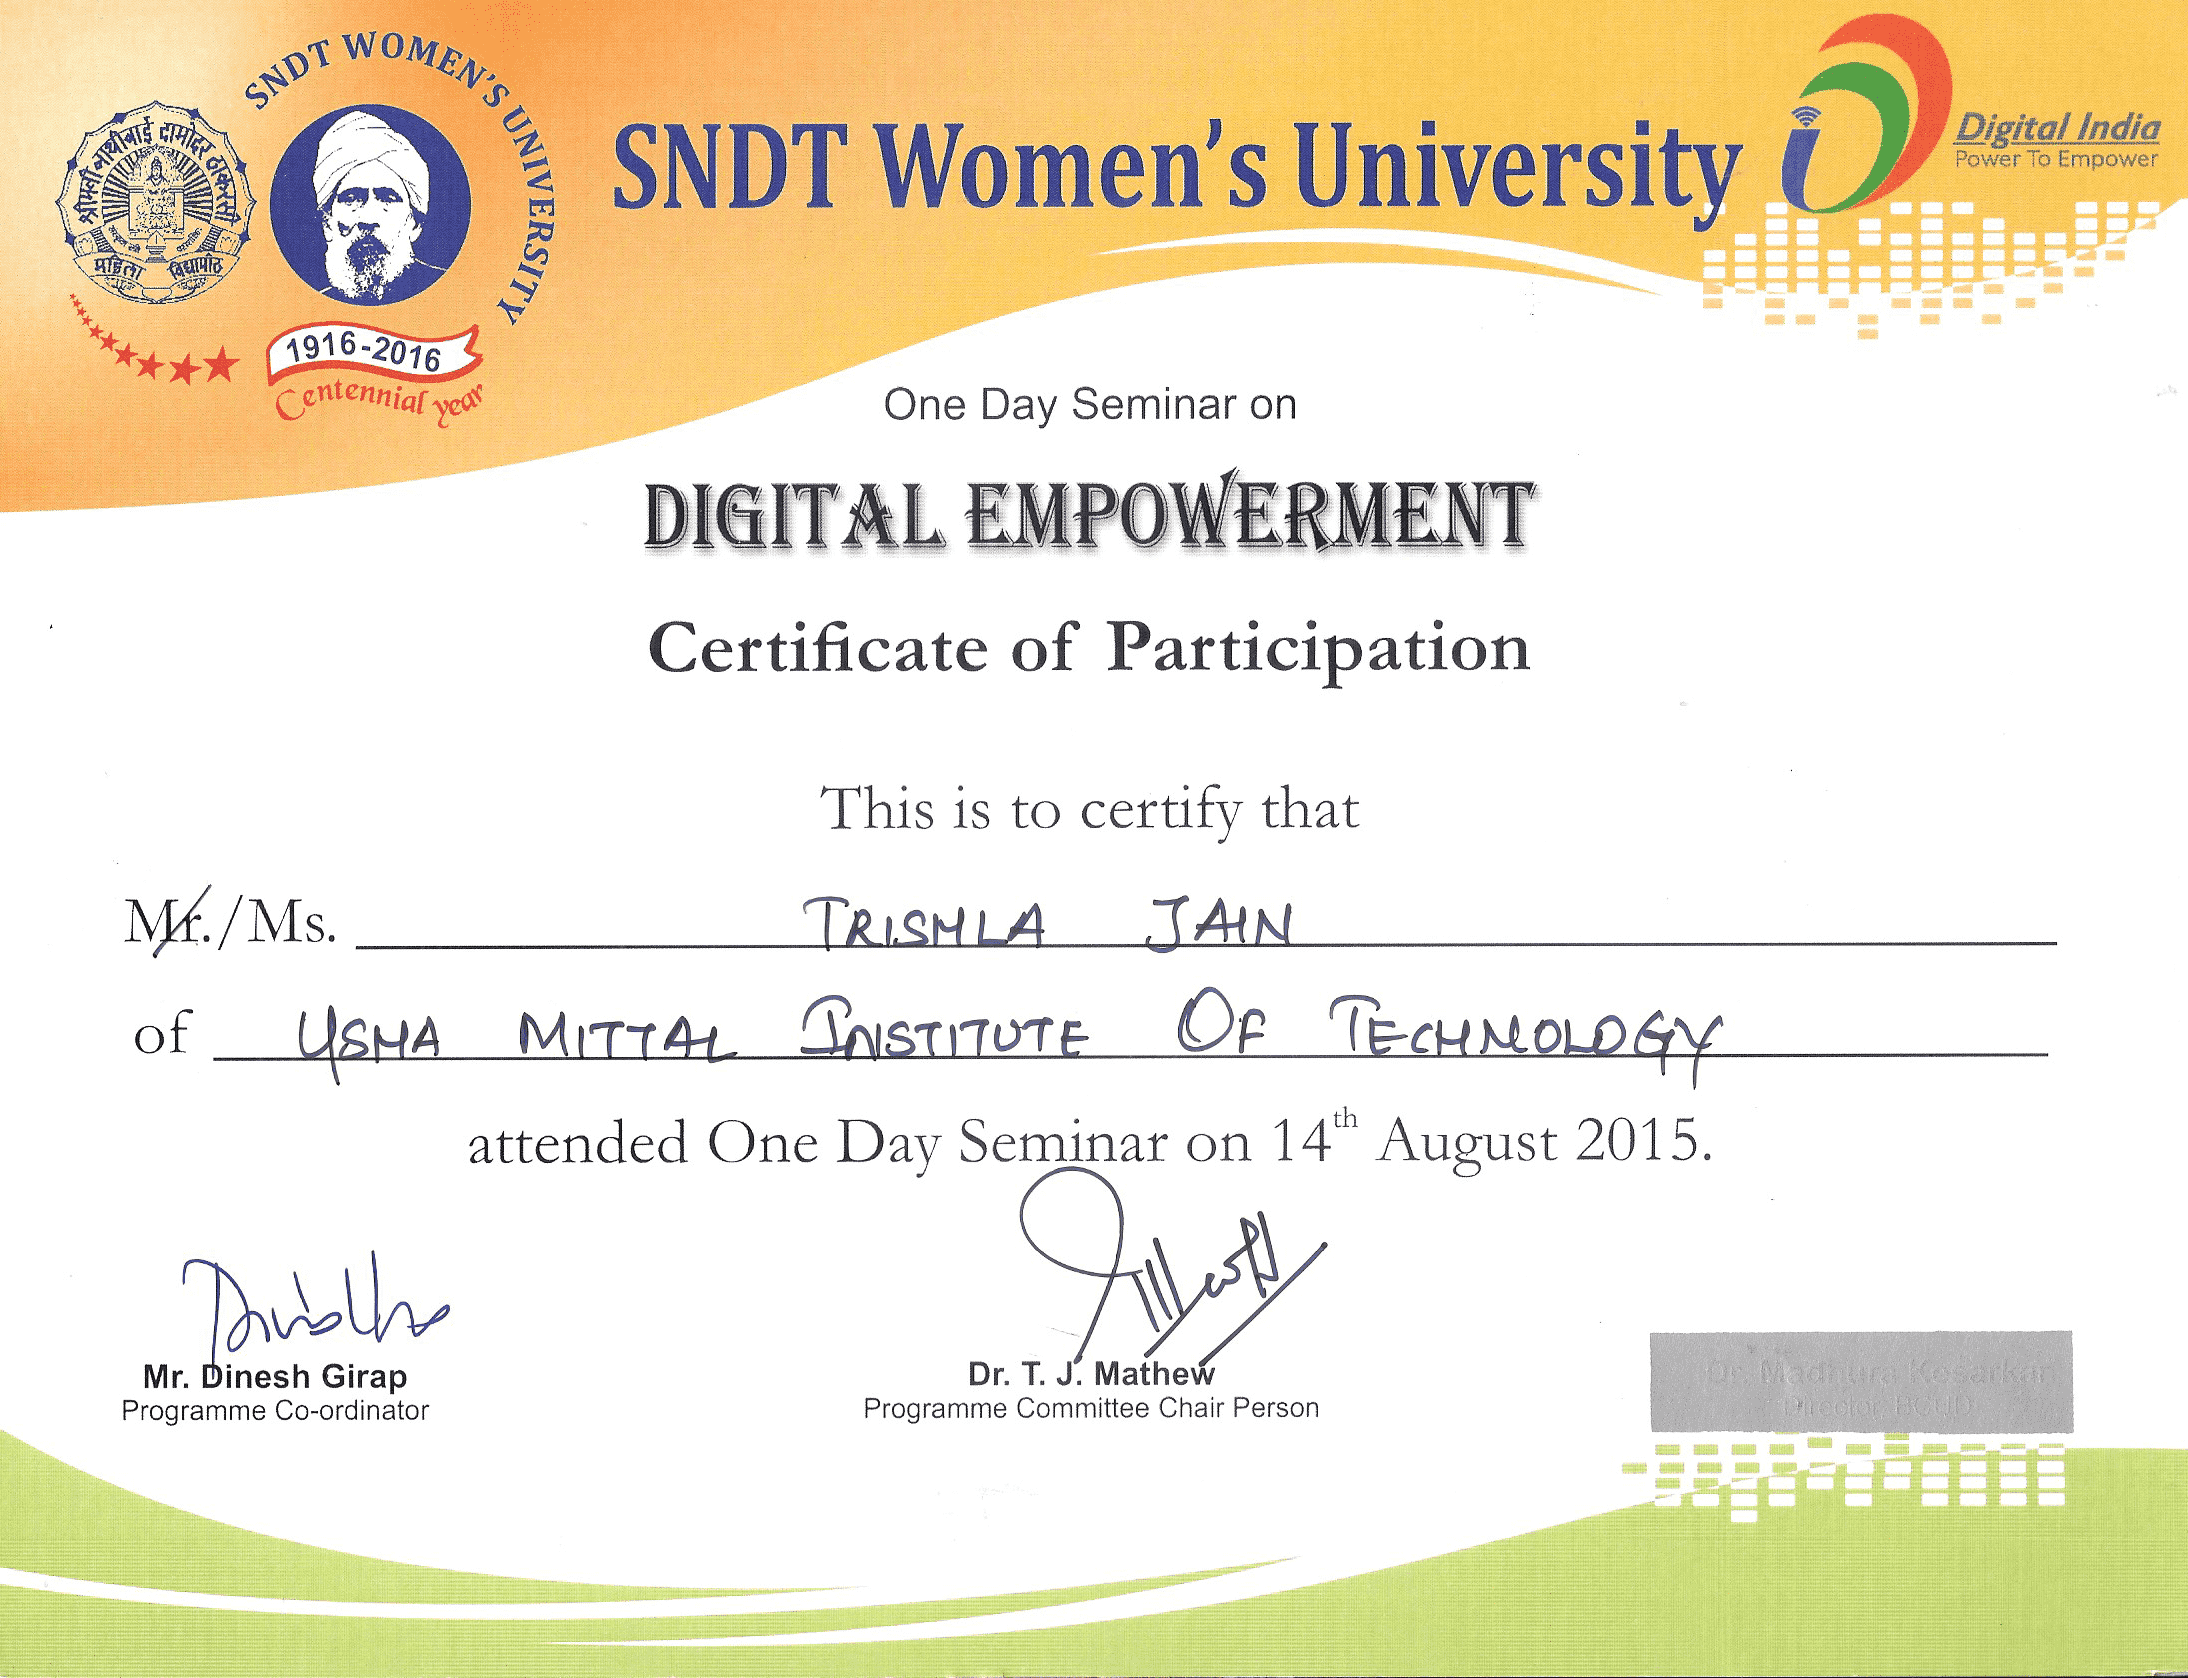 श्रीमती नाथीबाई दामोदर ठाकरसी
महिला विद्यापीठ
SNDT WOMEN'S UNIVERSITY
1916-2016
Centennial year
SNDT Women's University
Digital India
Power To Empower
One Day Seminar on
DIGITAL EMPOWERMENT
Certificate of Participation
This is to certify that
Mr./Ms. TRISHLA JAIN
of USHA MITTAL INSTITUTE OF TECHNOLOGY
attended One Day Seminar on 14th August 2015.
Mr. Dinesh Girap
Programme Co-ordinator
Dr. T. J. Mathew
Programme Committee Chair Person
Dr. Madhura Kesarkar
Director, BCUD